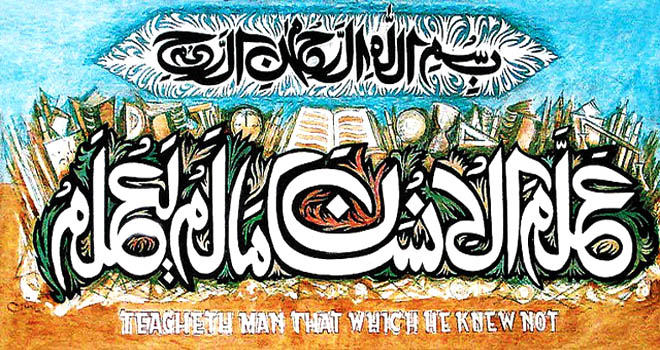 بِسْمِ اللّٰهِ الرَّحْمٰنِ الرَّحِيمِ
عَلَّمَ الْاِنْسَانَ مَا لَمْ يَعْلَمْ
TEACHETH MAN THAT WHICH HE KNEW NOT